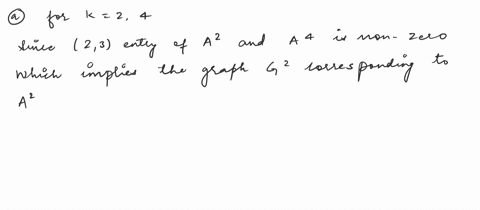 ⓐ for k = 2, 4
since (2,3) entry of A² and A⁴ is non-zero
which implies the graph G² corresponding to
A²